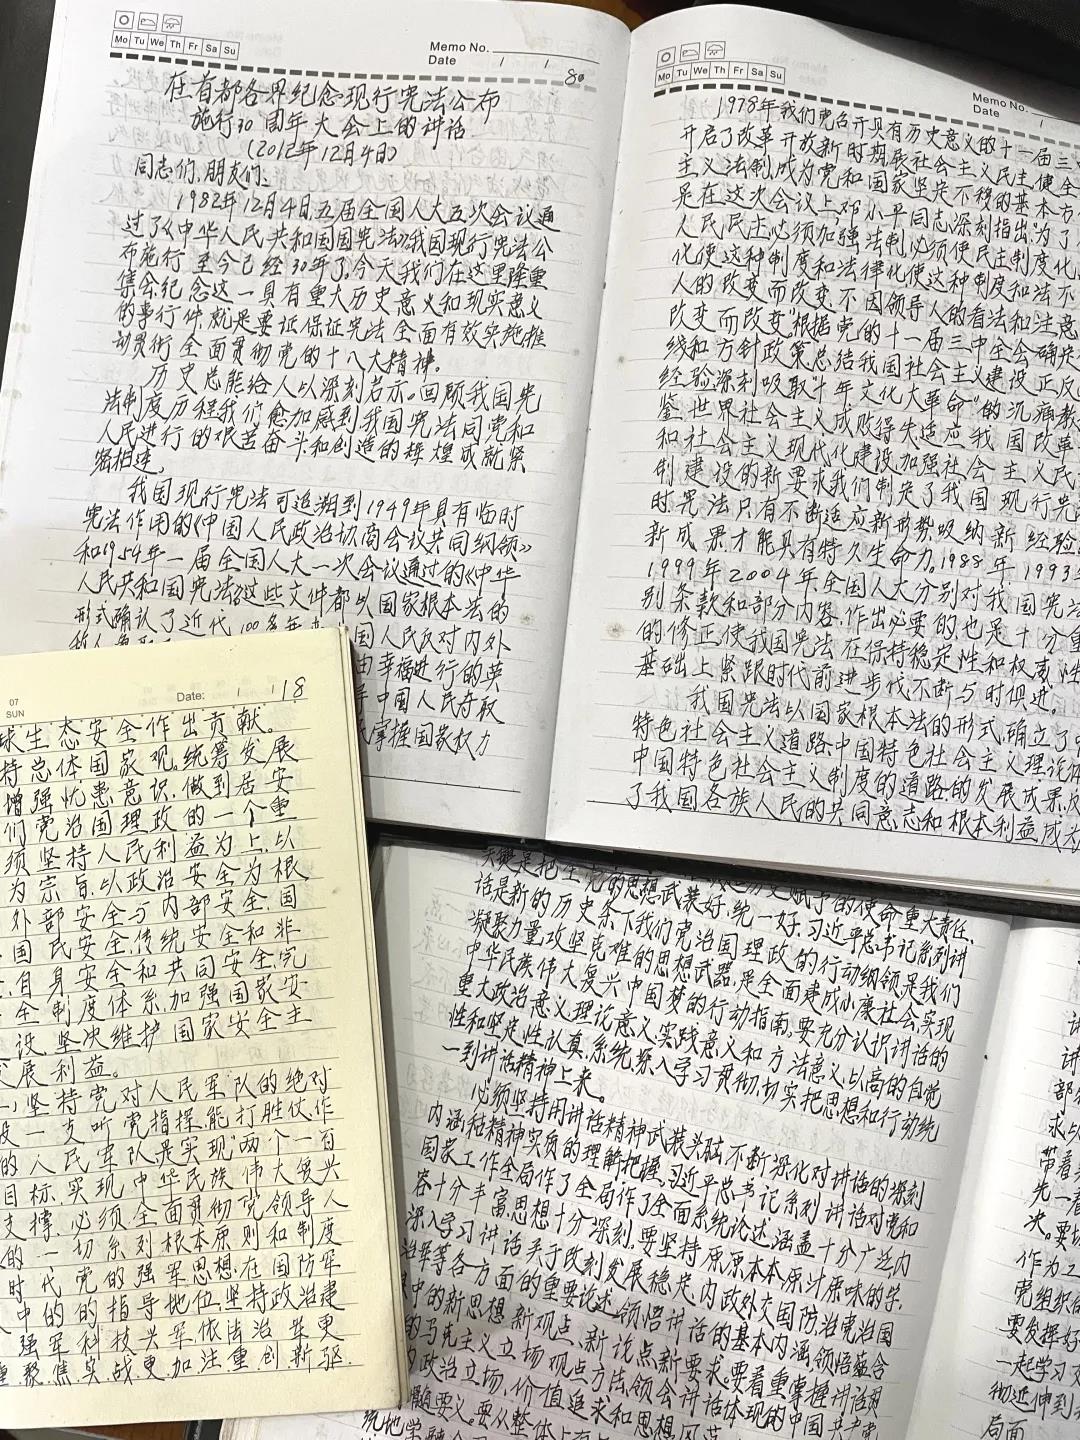 Mo Tu We Th Fr Sa Su
Memo No.
Date / /
80
在首都各界纪念现行宪法公布
施行30周年大会上的讲话
(2012年12月4日)
同志们,朋友们:
1982年12月4日,五届全国人大五次会议通
过了《中华人民共和国国宪法》我国现行宪法公
布施行至今已经30年了。今天我们在这里隆重
集会纪念这一具有重大历史意义和现实意义
的事行件,就是要证保证宪法全面有效实施推
动贯彻全面贯彻党的十八大精神。
历史总能给人以深刻启示。回顾我国宪
法制度历程我们愈加感到我国宪法同党和
人民进行的艰苦奋斗和创造的辉煌成就紧
密相连,
我国现行宪法可追溯到1949年具有临时
宪法作用的《中国人民政治协商会议共同纲领》
和1954年一届全国人大一次会议通过的《中华
人民共和国宪法》这些文件都以国家根本法的
形式确认了近代100多年
国人民反对内外
由幸福进行的英
中国人民夺取
掌握国家权力
Mo Tu We Th Fr Sa Su
Memo No.
Date /
1978年我们党召开具有历史意义的十一届三
开启了改革开放新时期展社会主义民主,健全
主义法制成为党和国家坚定不移的基本方
是在这次会议上,邓小平同志深刻指出:为了
人民民主,必须加强法制,必须使民主制度化
化使这种制度和法律化使这种制度和法不
人的改变而改变,不因领导人的看法和注意
改变而改变"根据党的十一届三中全会确
线和方针政策总结我国社会主义建设正反
经验深刻吸取十年文化大革命"的沉痛教
鉴世界社会主义成败得失适应我国改革
和社会主义现代化建设,加强社会主义民
制建设的新要求我们制定了我国现行宪
时宪法只有不断适应新形势吸纳新经验
新成果才能具有持久生命力。1988年1993
1999年2004年,全国人大分别对我国宪
别条款和部分内容,作出必要的也是十分重
的修正使我国宪法在保持稳定性和权威性
基础上紧跟时代前进步伐不断与时俱进。
我国宪法以国家根本法的形式,确立了中
特色社会主义道路中国特色社会主义理论体
中国特色社会主义制度的道路的发展成果,
了我国各族人民的共同意志和根本利益成为
07
SUN
Date: / / 18
球生态安全作出贡献。
持总体国家观,统筹发展
增强忧患意识,做到居安
们党治国理政的一个重
须坚持人民利益为上,以
为宗旨,以政治安全为根
外部安全与内部安全,国
国民安全,传统安全和非
自身安全和共同安全,完
全制度体系,加强国家安
设,坚决维护国家安全主
发展利益。
坚持党对人民军队的绝对
一支听党指挥,能打胜仗,作
的人民军队是实现"两个一百
目标,实现中华民族伟大复兴
支撑,必须全面贯彻党领导人
的一切系列根本原则和制度
时代党的强军思想在国防军
中的的指导地位,坚持政治建
强军科技兴军依法治军更
聚焦实战更加注重创新驱
是把全党的思想武装好,统一好,习近平总书记系列讲
话是新的历史条下我们党治国理政的行动纲领是我们
凝聚力量攻坚克难的思想武器,是全面建成小康社会,实现
中华民族伟大复兴中国梦的行动指南,要充分认识讲话的
重大政治意义,理论意义,实践意义和方法意义,以高的自觉
性和坚定性认真,系统,深入学习贯彻,切实把思想和行动统
一到讲话精神上来。
必须坚持用讲话精神武装头脑,不断深化对讲话的深刻
内涵和精神实质的理解把握,习近平总书记系列讲话对党和
国家工作全局作了全局作了全面系统论述,涵盖十分广泛,内
容十分丰富,思想十分深刻,要坚持原原本本原汁原味的学,
深入学习讲话关于改刻发展稳定,内政外交国防治党治国
治军等各方面的重要论述,领悟讲话的基本内涵,领悟蕴含
中的新思想新观点,新论点新要求。要着重掌握讲话
马克主义立场观点方法,领会讲话体现的中国共产党
政治立场,价值追求和思想风
要义。要从整体上
讲
部
求
带着
先一
决。要
作为
党组织
要发挥好
一起学习
彻延伸到
局面